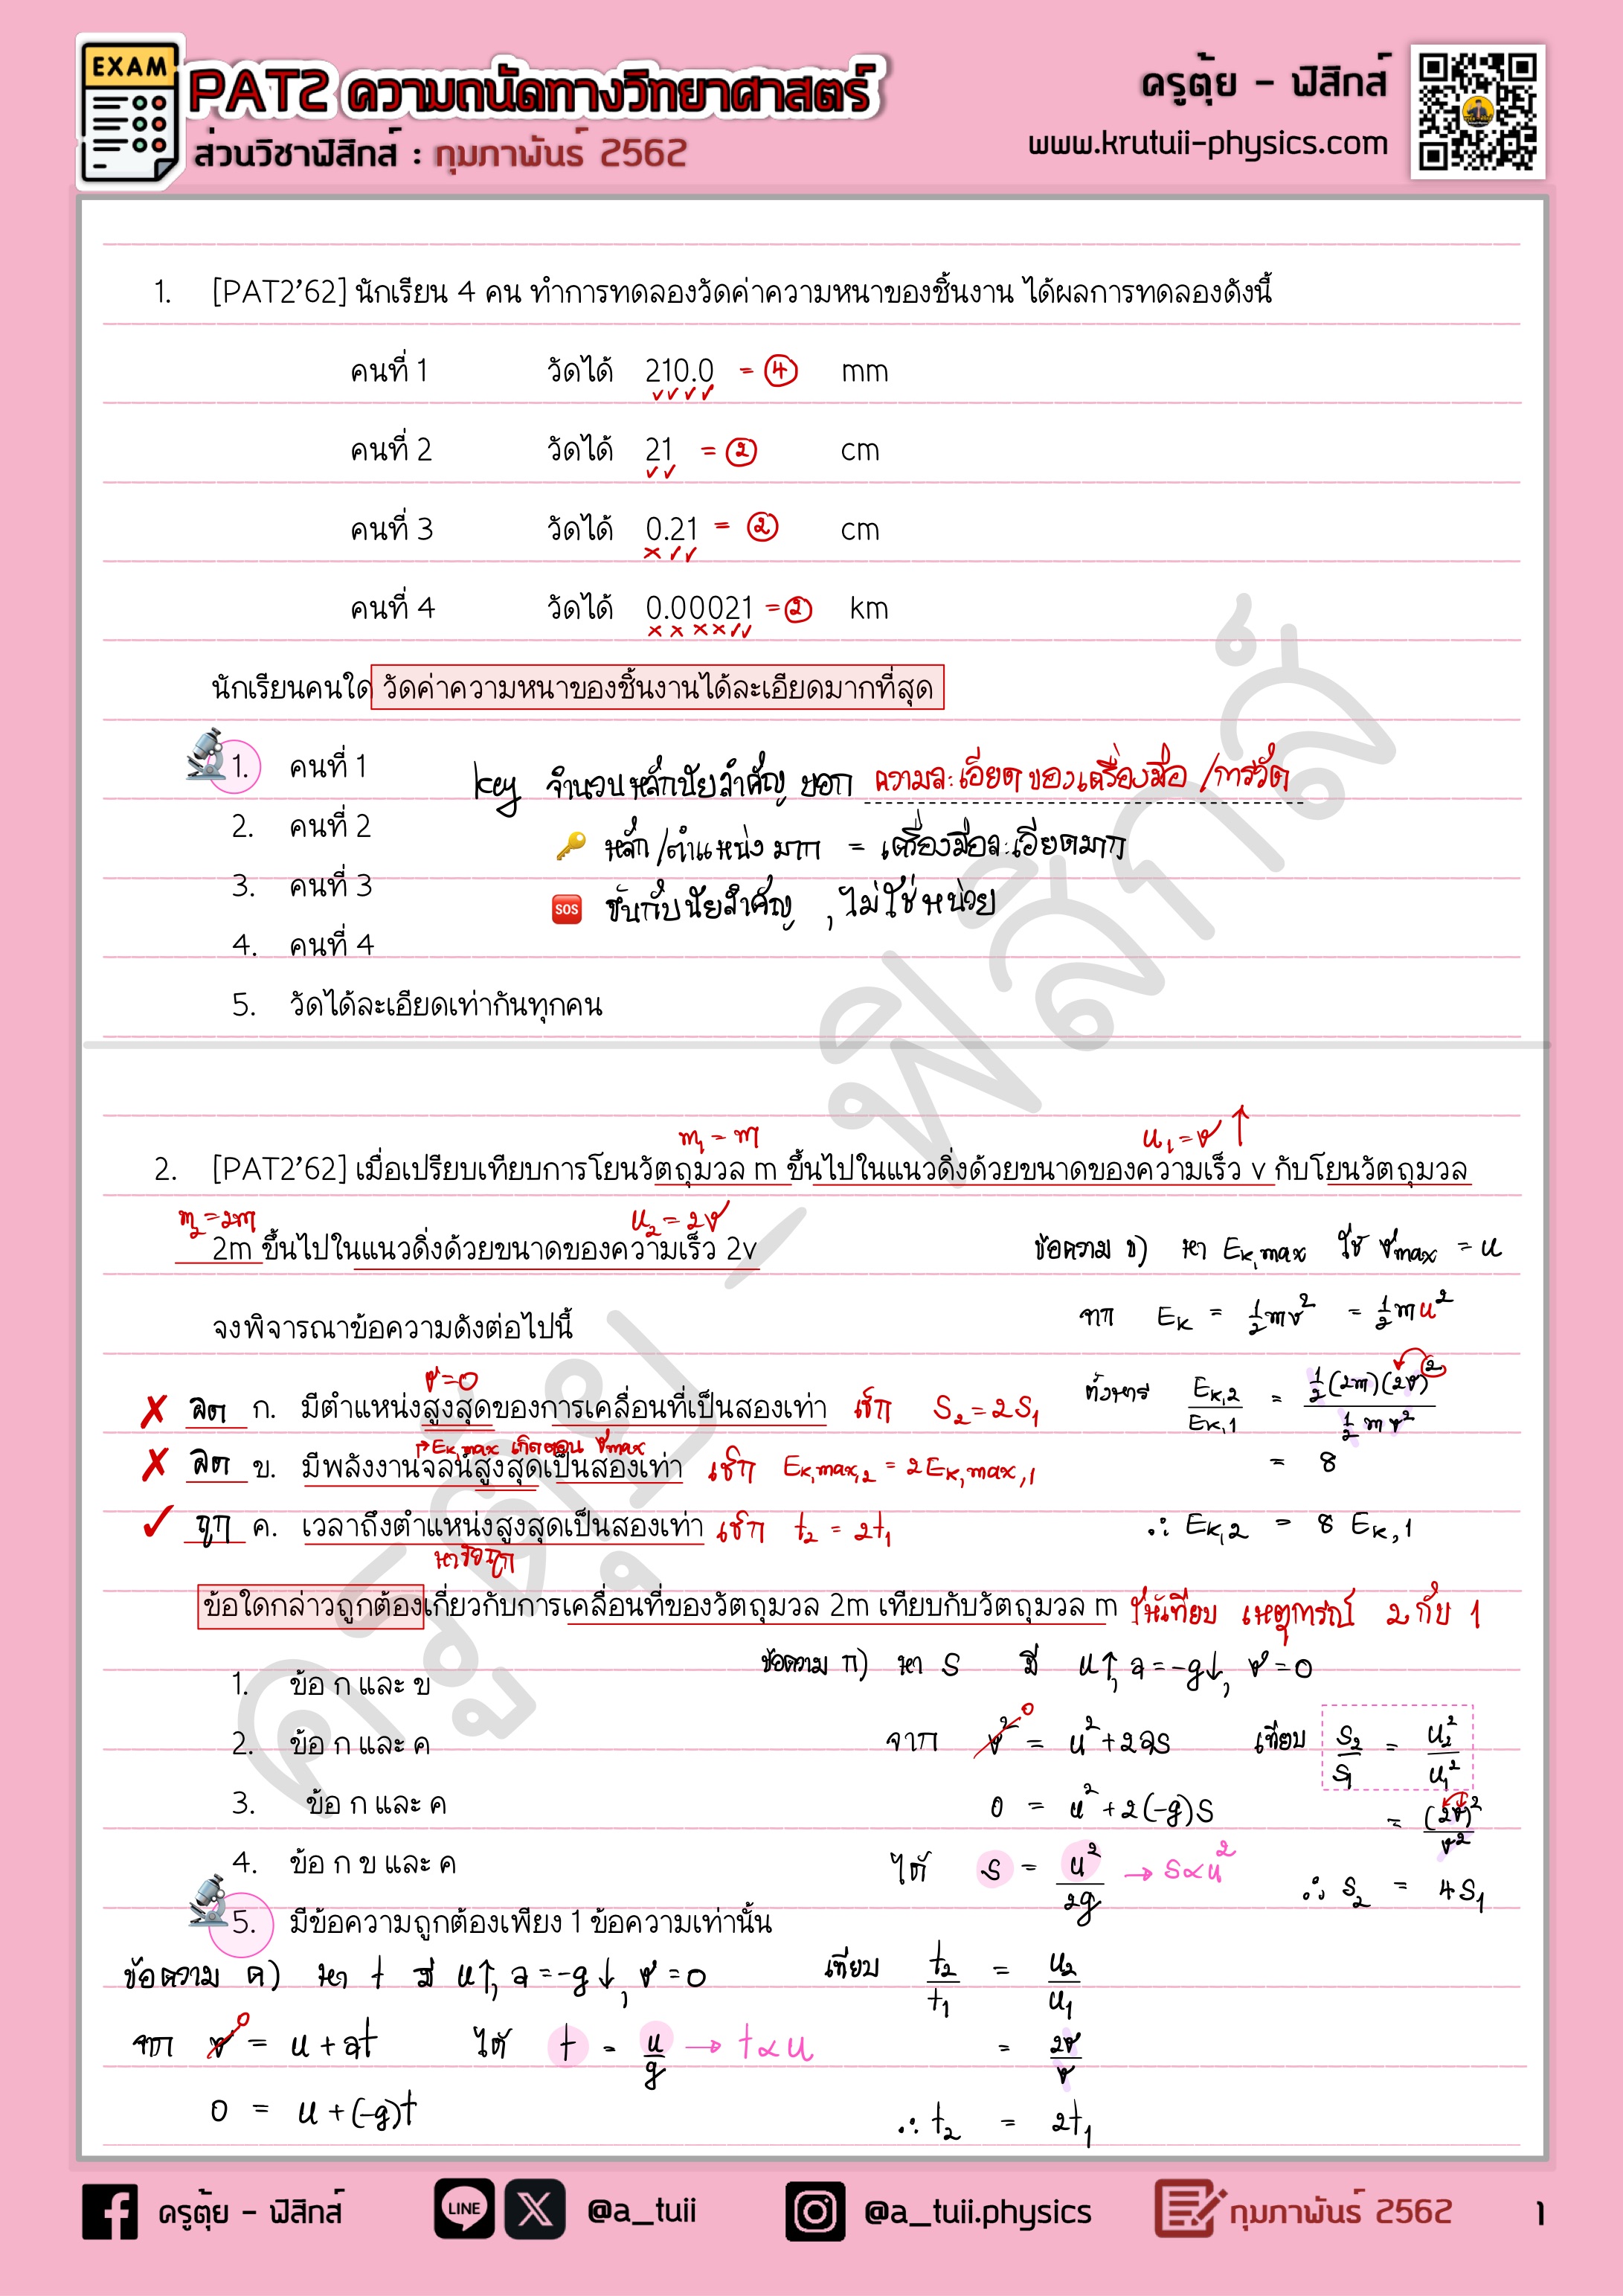 EXAM
PAT2 ความถนัดทางวิทยาศาสตร์
ส่วนวิชาฟิสิกส์ : กุมภาพันธ์ 2562
ครูตุ้ย - ฟิสิกส์
www.krutuii-physics.com
1. [PAT2'62] นักเรียน 4 คน ทำการทดลองวัดค่าความหนาของชิ้นงาน ได้ผลการทดลองดังนี้
คนที่ 1 วัดได้ 210.0 = 4 mm
คนที่ 2 วัดได้ 21 = 2 cm
คนที่ 3 วัดได้ 0.21 = 2 cm
คนที่ 4 วัดได้ 0.00021 = 2 km
นักเรียนคนใด วัดค่าความหนาของชิ้นงานได้ละเอียดมากที่สุด
1. คนที่ 1
key จำนวนหลักนัยสำคัญ บอก ความละเอียดของเครื่องมือ /การวัด
2. คนที่ 2
🔑 หลัก/ตำแหน่ง มาก = เครื่องมือละเอียดมาก
3. คนที่ 3
SOS ขึ้นกับนัยสำคัญ , ไม่ใช่หน่วย
4. คนที่ 4
5. วัดได้ละเอียดเท่ากันทุกคน
m₁ = m u₁ = v ↑
2. [PAT2'62] เมื่อเปรียบเทียบการโยนวัตถุมวล m ขึ้นไปในแนวดิ่งด้วยขนาดของความเร็ว v กับโยนวัตถุมวล
m₂ = 2m u₂ = 2v
2m ขึ้นไปในแนวดิ่งด้วยขนาดของความเร็ว 2v
จงพิจารณาข้อความดังต่อไปนี้
v = 0
✗ ผิด ก. มีตำแหน่งสูงสุดของการเคลื่อนที่เป็นสองเท่า เช็ก S₂ = 2S₁
↱Ek,max เกิดตอน vmax
✗ ผิด ข. มีพลังงานจลน์สูงสุดเป็นสองเท่า เช็ก Ek,max,2 = 2Ek,max,1
✓ ถูก ค. เวลาถึงตำแหน่งสูงสุดเป็นสองเท่า เช็ก t₂ = 2t₁
หาข้อถูก
ข้อใดกล่าวถูกต้องเกี่ยวกับการเคลื่อนที่ของวัตถุมวล 2m เทียบกับวัตถุมวล m ให้เทียบ เหตุการณ์ 2 กับ 1
ข้อความ ข) หา Ek,max ใช้ vmax = u
จาก Ek = ½mv² = ½mu²
ตั้งหาร Ek,2/Ek,1 = ½(2m)(2v)² / ½mv²
= 8
∴ Ek,2 = 8 Ek,1
1. ข้อ ก และ ข
2. ข้อ ก และ ค
3. ข้อ ก และ ค
4. ข้อ ก ข และ ค
5. มีข้อความถูกต้องเพียง 1 ข้อความเท่านั้น
ข้อความ ก) หา S มี u↑, a = -g↓, v = 0
จาก v² 0 = u² + 2as
0 = u² + 2(-g)S
ได้ S = u²/2g → S ∝ u²
เทียบ S₂/S₁ = u₂²/u₁²
= (2v)²/v²
∴ S₂ = 4S₁
ข้อความ ค) หา t มี u↑, a = -g↓, v = 0
จาก v 0 = u + at
0 = u + (-g)t
ได้ t = u/g → t ∝ u
เทียบ t₂/t₁ = u₂/u₁
= 2v/v
∴ t₂ = 2t₁
ครูตุ้ย - ฟิสิกส์
ครูตุ้ย - ฟิสิกส์
LINE
@a_tuii
@a_tuii.physics
กุมภาพันธ์ 2562
1